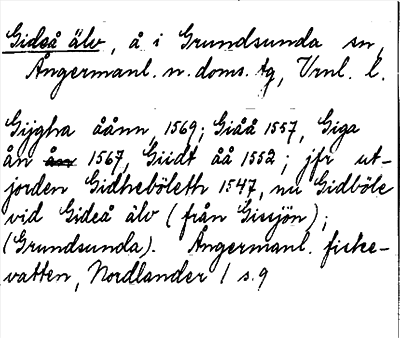 Gideå älv, å i Grundsunda sn,
Ångermanl. n. doms. tg, Vrnl. l.
Gijgha åånn, 1569; Giåå 1557, Giga
ån 1567, Giidt åå 1552; jfr ut-
jorden Gidheböleth 1547, nu Gidböle
vid Gideå älv (från Gissjön);
(Grundsunda). Ångermanl. fiske-
vatten, Nordlander 1 s. 9